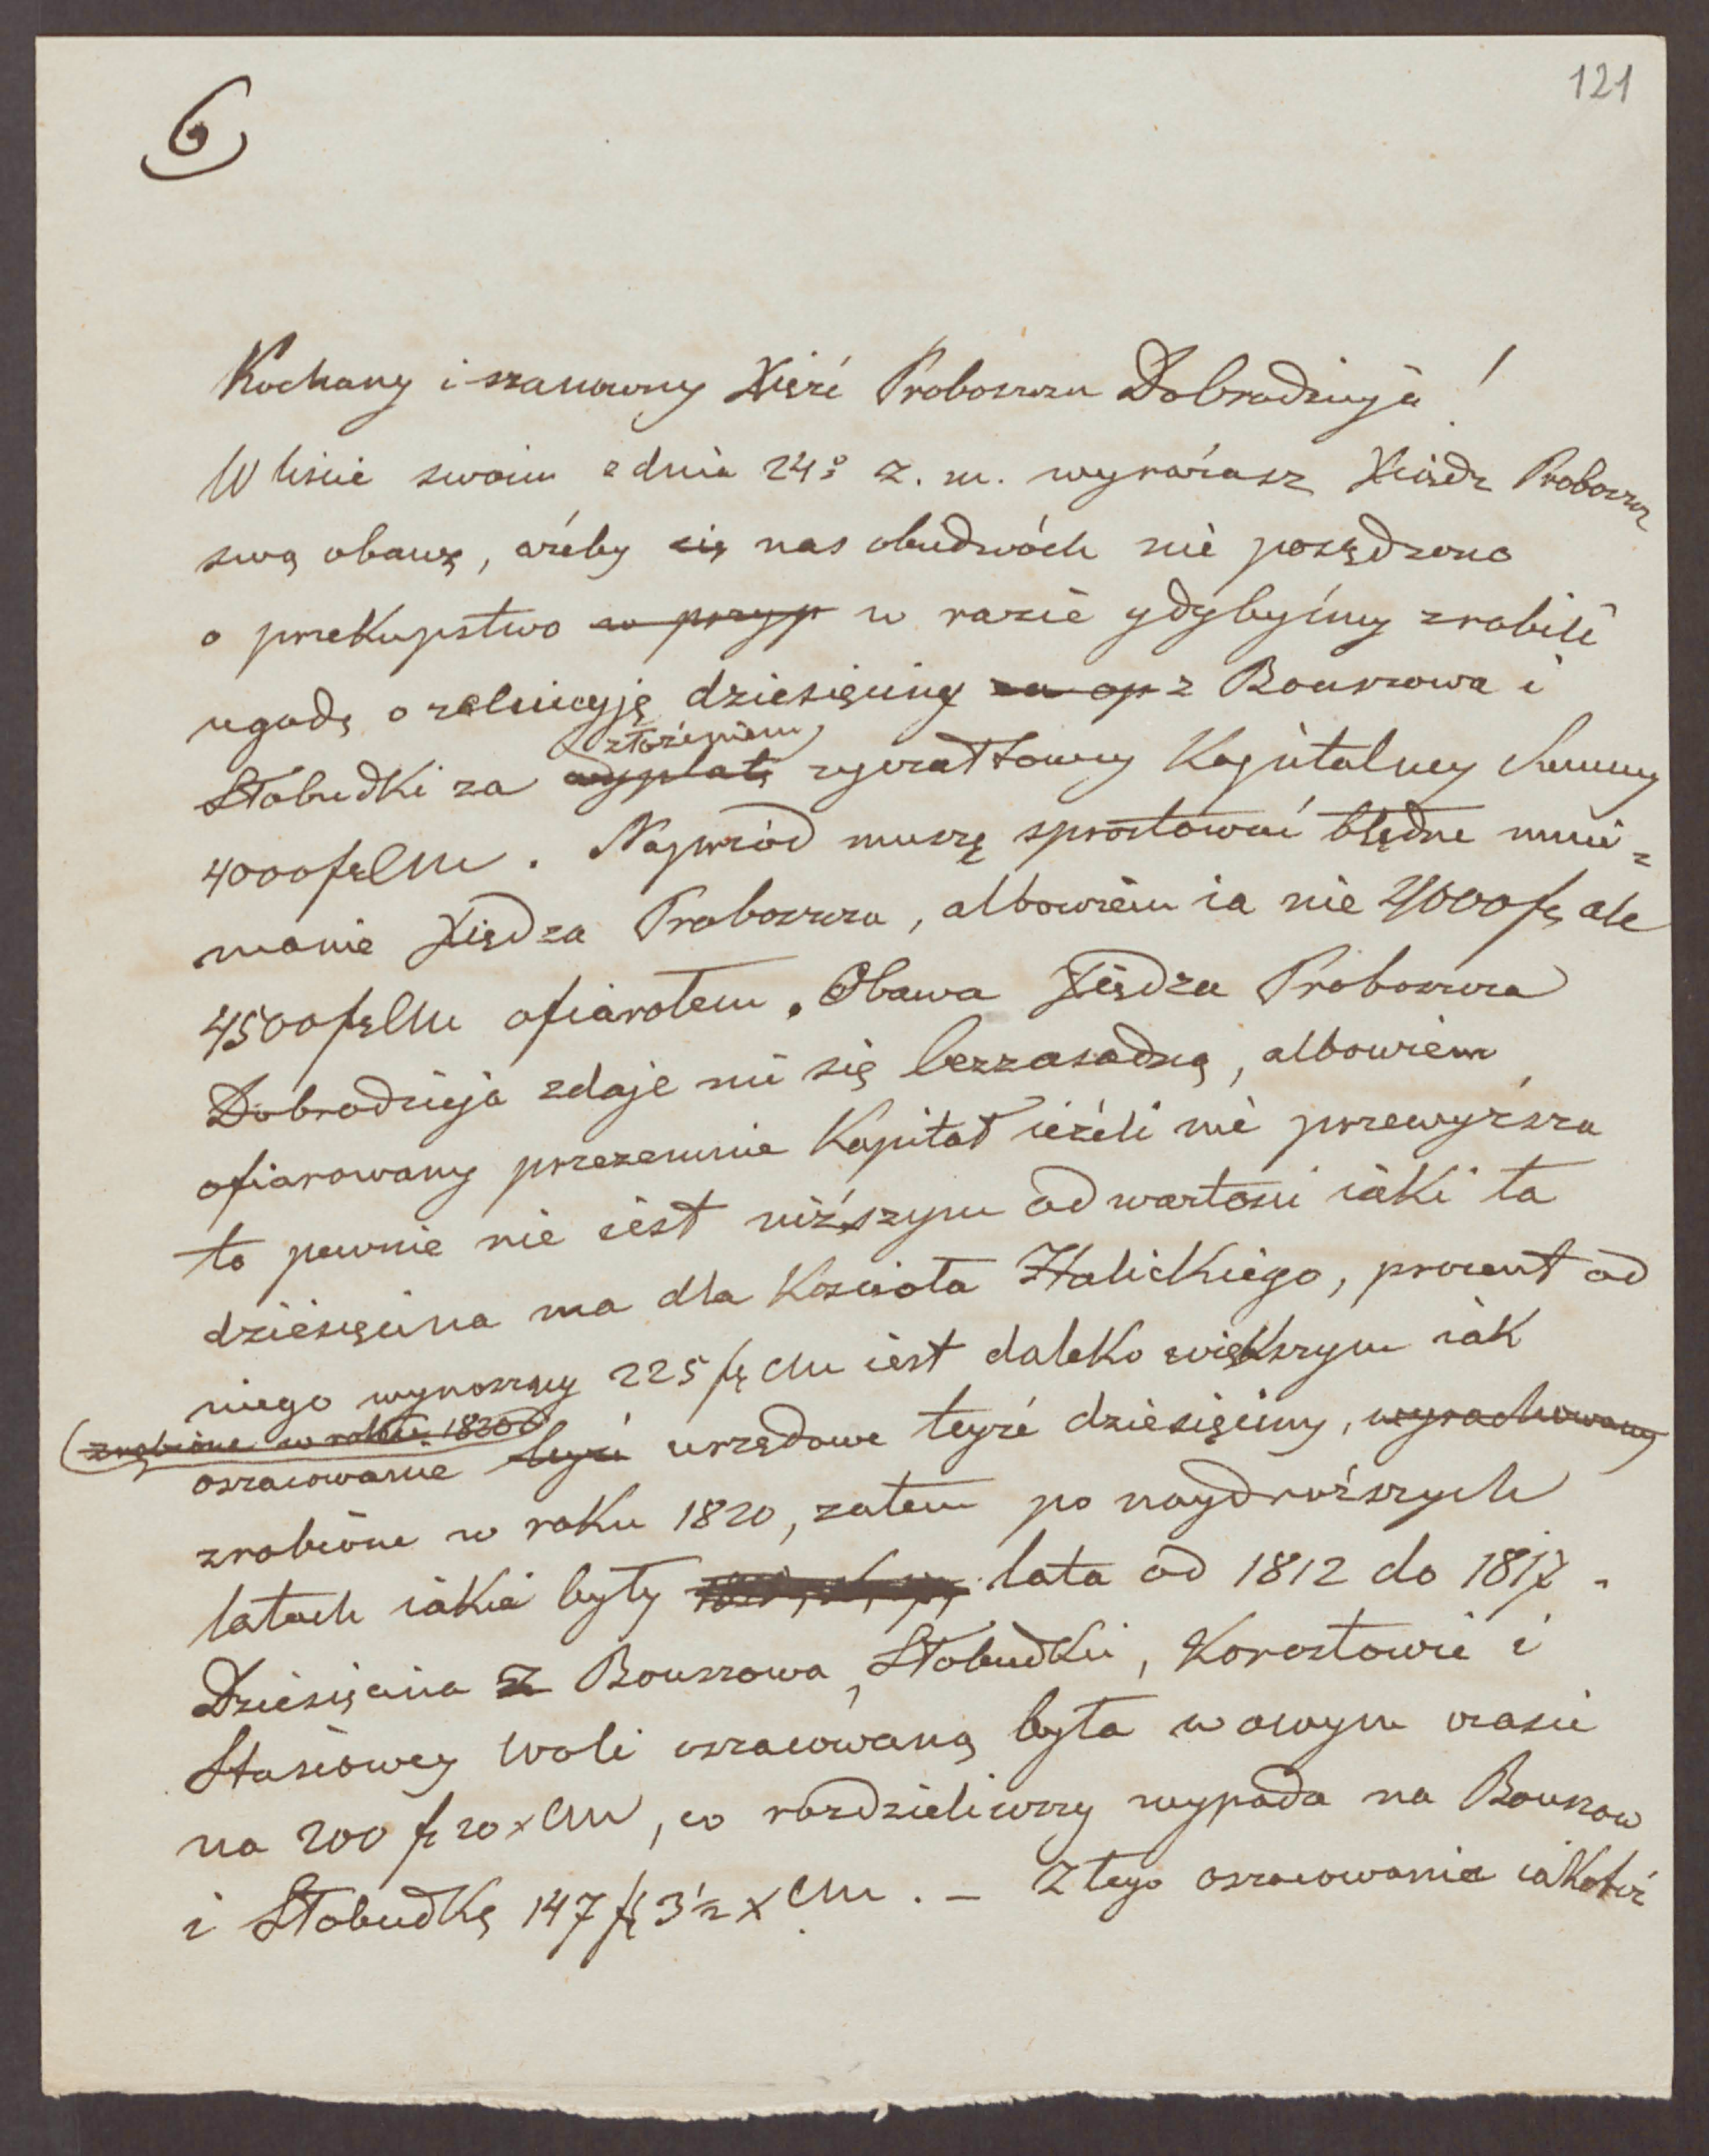 121
6
Kochany i szanowny Xięże Proboszczu Dobrodzieju!
W liście swoim z dnia 24º z. m. wyrażasz Xiądz Proboszcz
swą obawę, ażeby się nas obudwóch nie posądzono
o przekupstwo w przyp w razie gdybyśmy zrobili
ugodę o reluicyję dziesięciny za op z Bouszowa i
złożeniem
Słobudki za wypłatę ryczałtowey Kapitalney Summy
4000 fr CM. Najprzód muszę sprostować błędne mnie-
manie Xiędza Proboszcza, albowiem ia nie 4000 fr, ale
4500 fr CM ofiarołem. Obawa Xiędza Proboszcza
Dobrodzieja zdaje mi się bezzasadną, albowiem
ofiarowany przezemnie Kapitał ieżeli nie przewyższa
to pewnie nie iest niższym od wartości iaki ta
dziesięcina ma dla Kościoła Halickiego, procent od
niego wynoszący 225 fr CM iest daleko większym iak
(zrobione w roku 1820)
oszacowanie tejże urzędowe teyże dziesięciny, wyrachowany
zrobione w roku 1820, zatem po naydroższych
latach iakie były lata od 1812 do 1817.
Dziesięcina z Bouszowa, Słobudki, Korostowie i
Stasiowey Woli oszacowaną była w owym czasie
na 200 fr 20 x CM, co rozdzieliwszy wypada na Bouszow
i Słobudkę 147 fr 3½ x CM. – Z tego oszacowania iakoteż